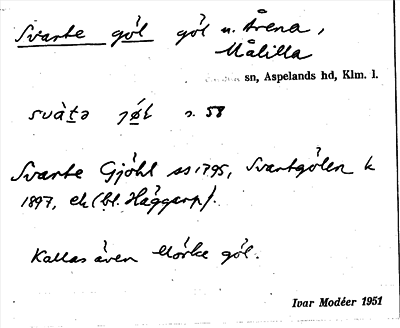 Svarte göl göl n. Årena,
Målilla
sn, Aspelands hd, Klm. l.
svàtə jø̀l s. 58
Svarte Gjöhl ss 1795, Svartgölen k
1897, ek (bl. Häggarp).
Kallas även Mörke göl.
Ivar Modéer 1951